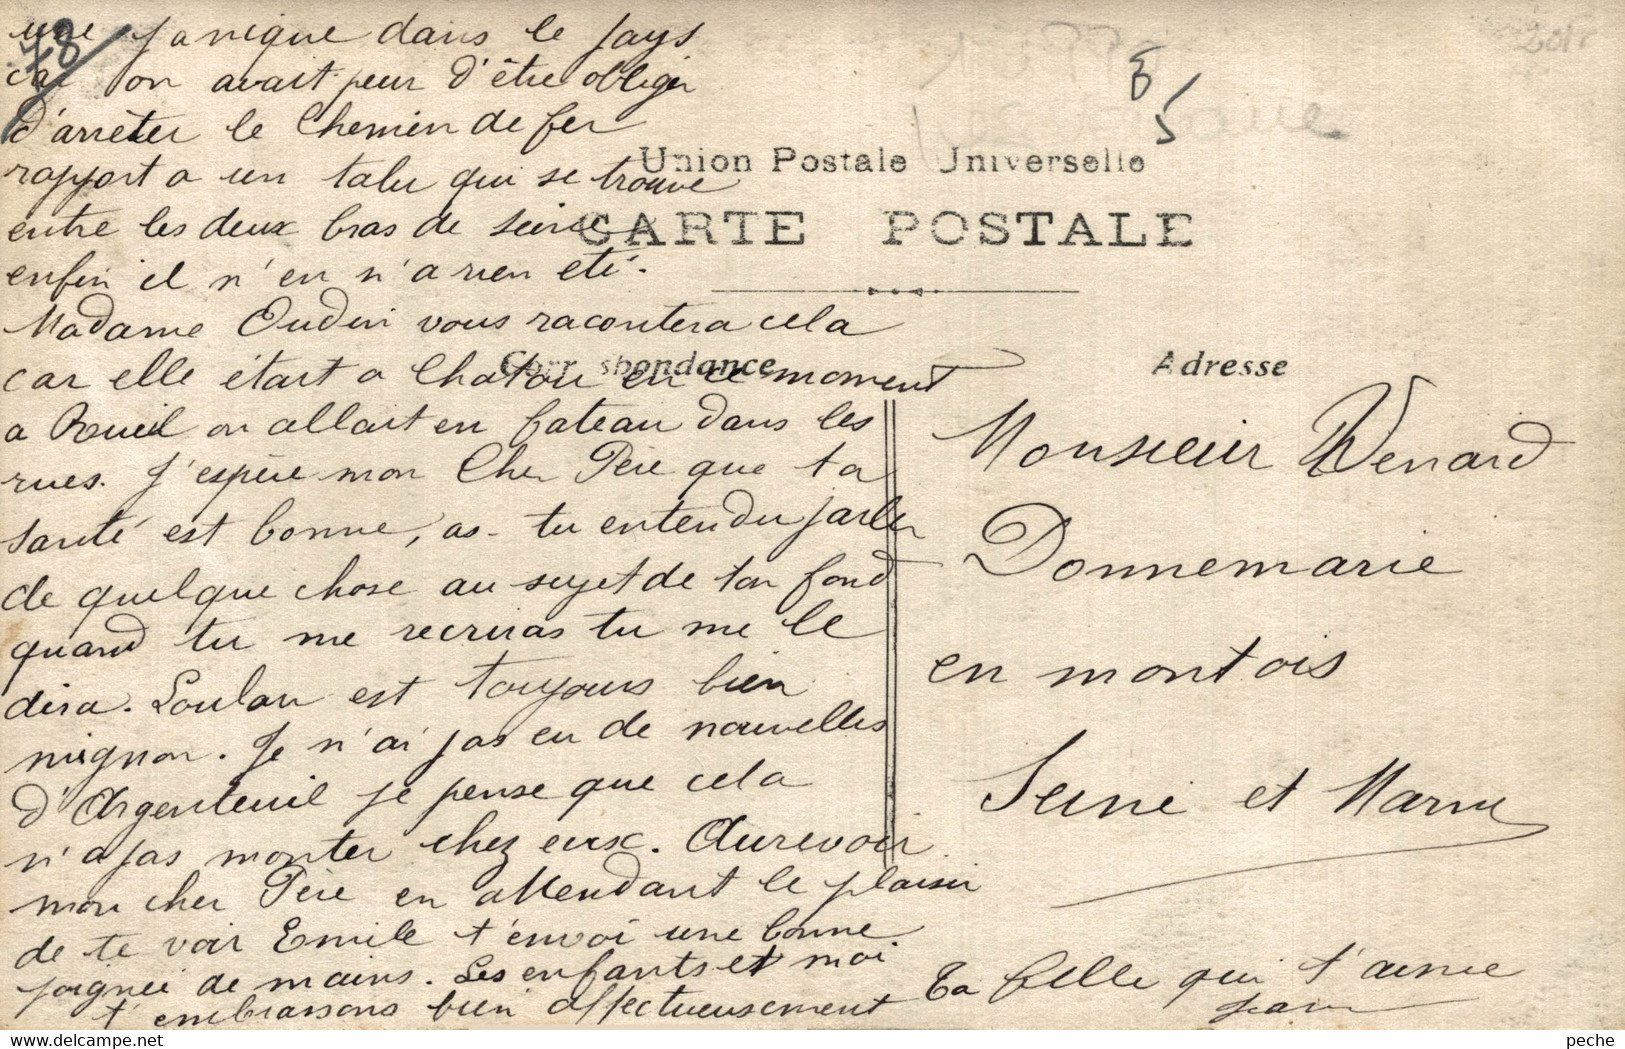 une panique dans le pays
car on avait peur d'être obliger
d'arrêter le Chemin de fer
rapport a un talu qui se trouve
entre les deux bras de seine
enfin il n'en n'a rien eté.
Madame Oudin vous racontera cela
car elle était a Chatou en ce moment
a Rueil on allait en bateau dans les
rues. J'espère mon Cher Père que ta
santé est bonne, as-tu entendu parler
de quelque chose au sujet de ton fond
quand tu me recriras tu me le
dira. Loulou est toujours bien
mignon. Je n'ai pas eu de nouvelles
d'Argenteuil je pense que cela
n'a pas monter chez eux. Aurevoir
mon cher Père en attendant le plaisir
de te voir Emile t'envoi une bonne
poignée de mains. Les enfants et moi
t'embrassons bien affectueusement
Ta fille qui t'aime
78
8
5
Union Postale Universelle
CARTE POSTALE
Correspondance
Adresse
Monsieur Venard
Donnemarie
en montois
Seine et Marne
peche